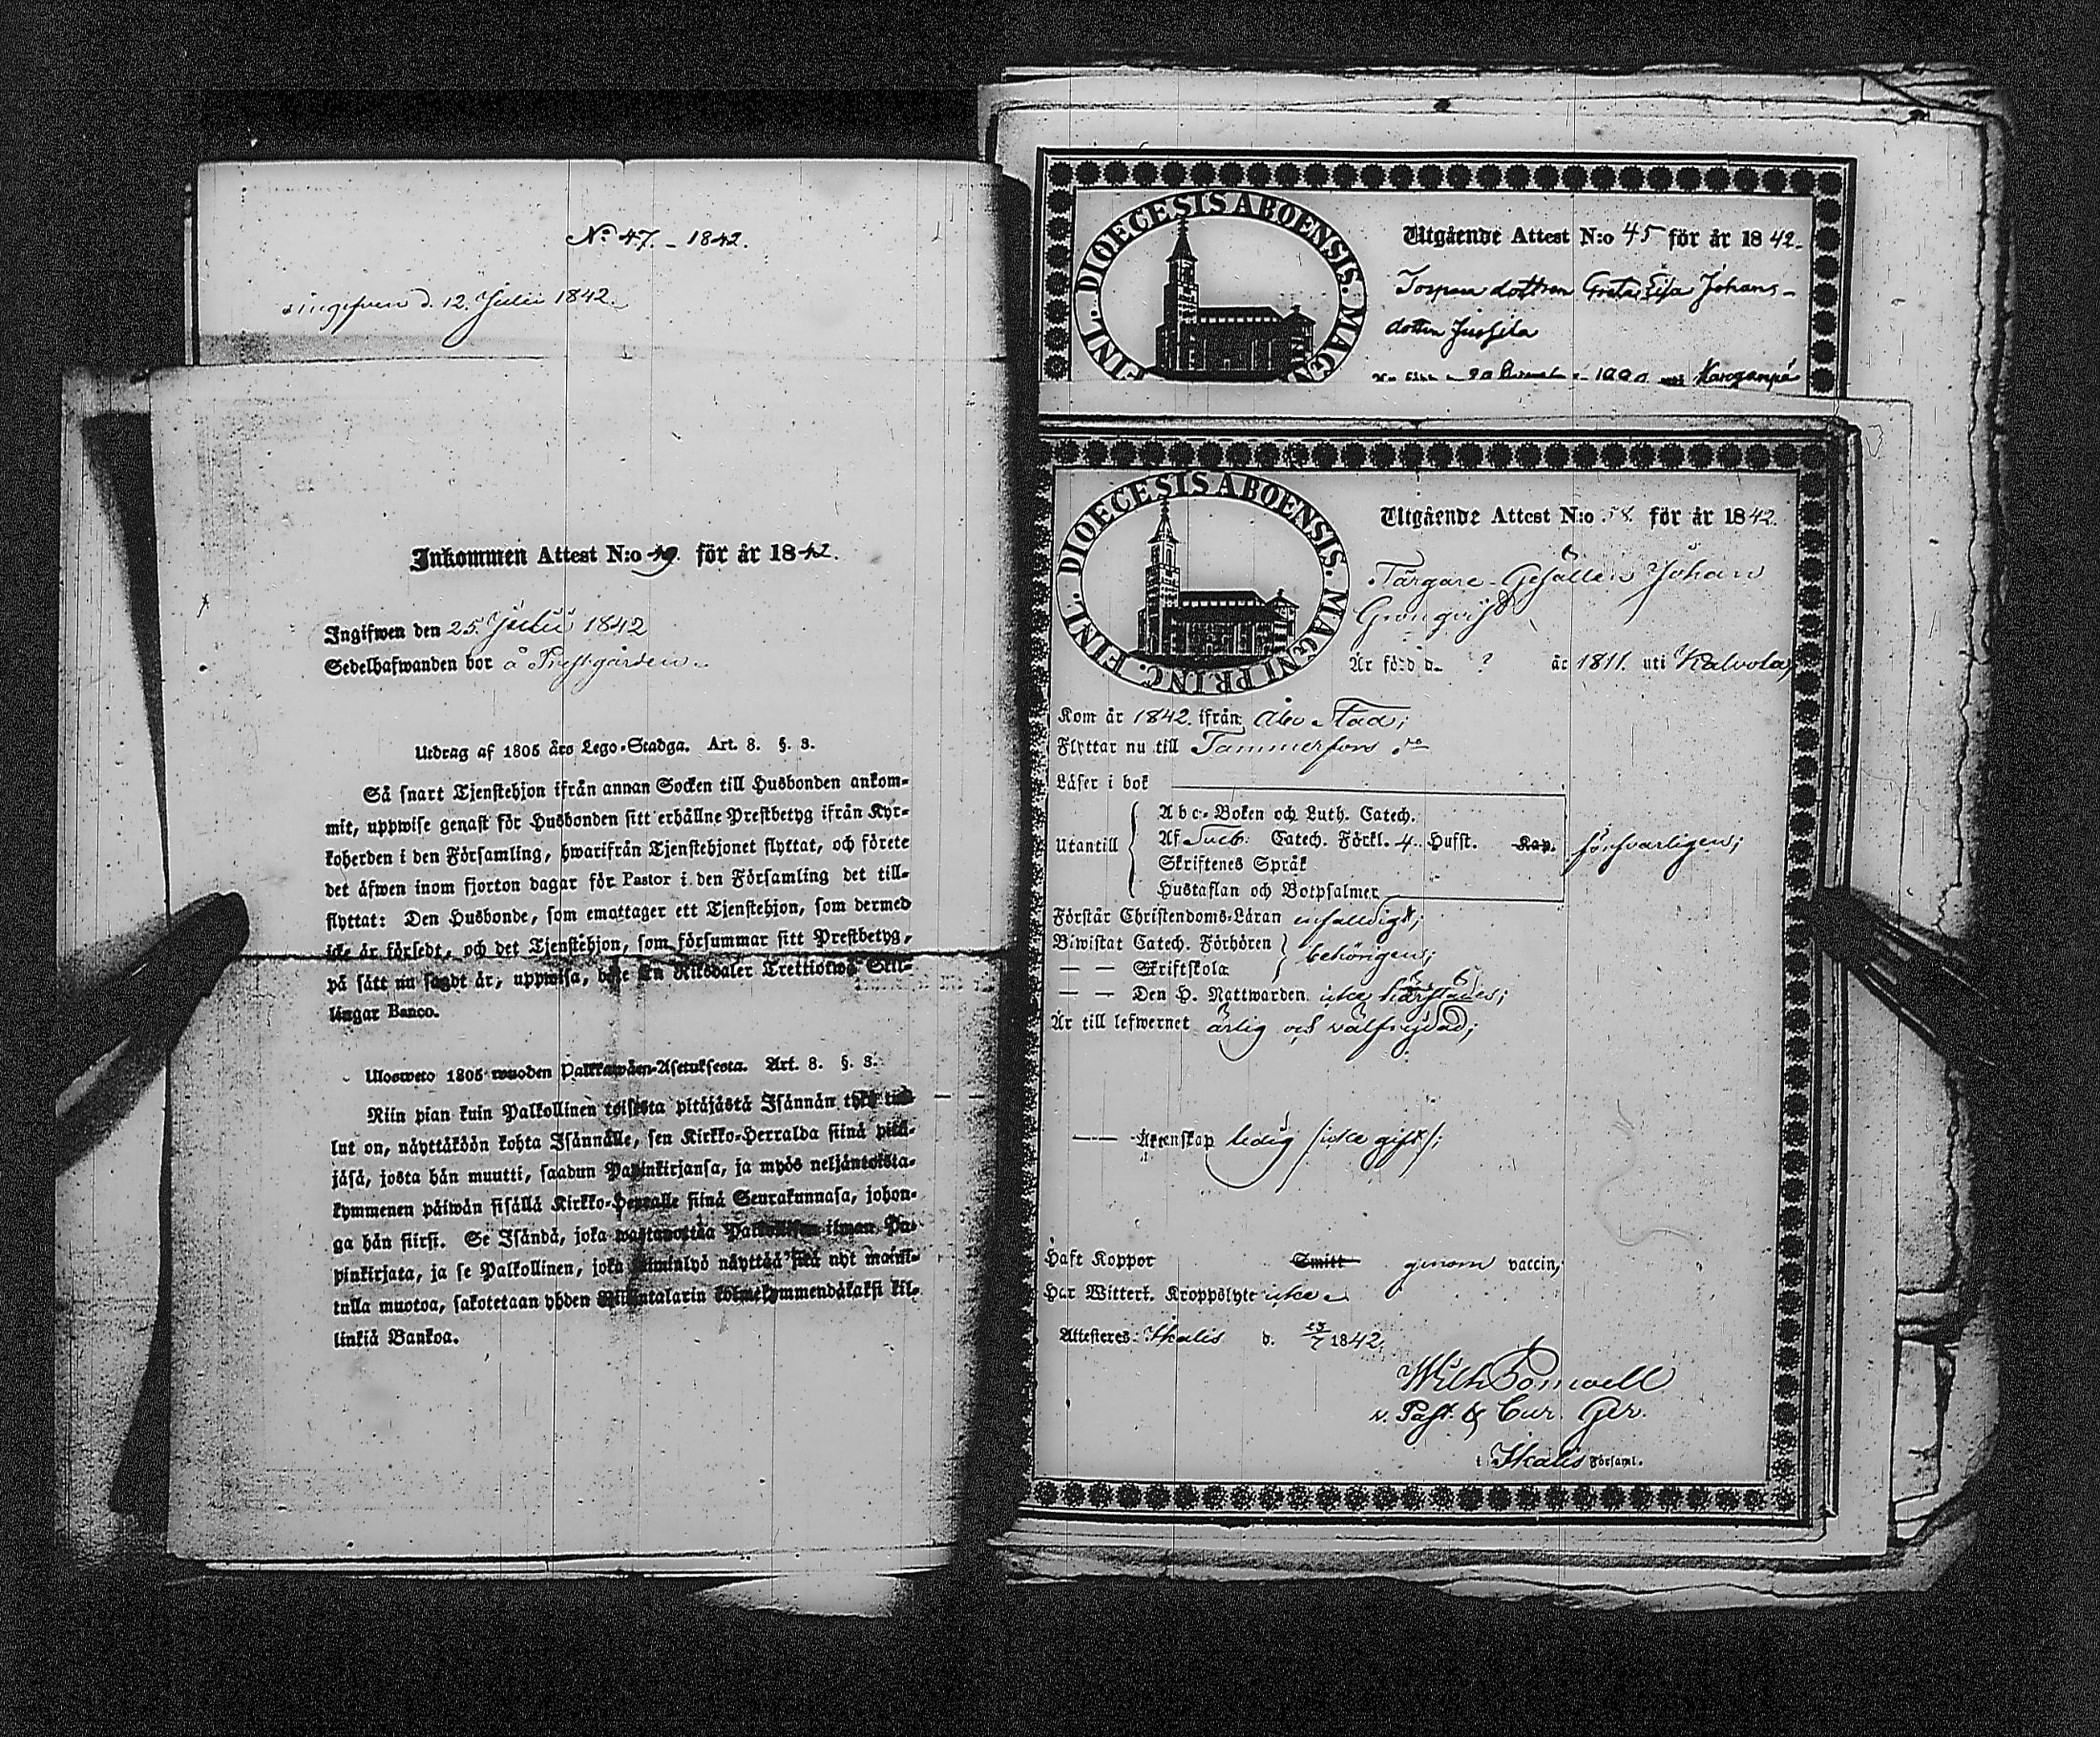 No 47. - 1842.
ingifven d. 12. Julii 1842.
Inkommen Attest N:o 49. för år 1842.
Ingifwen den 25. Julii 1842
Sedelhafwanden bor å Prestgården.
Utdrag af 1805 års Lego-Stadga. Art. 8. §. 3.
Så snart Tjenstehjon ifrån annan Socken till Husbonden ankom-
mit, uppwise genast för Husbonden sitt erhållne Prestbetyg ifrån Kyr-
koherden i den Församling, hwarifrån Tjenstehjonet flyttat, och förete
det äfwen inom fjorton dagar för Pastor i den Församling det till-
flyttat: Den Husbonde, som emottager ett Tjenstehjon, som dermed
icke är försedt, och det Tjenstehjon, som försummar sitt Prestbetyg,
på sätt nu sagdt är, uppwisa, böte En Riksdaler Trettiotwå Skil-
lingar Banco.
Ulosweto 1805 wuoden Palkkawäen-Asetuksesta. Art. 8. §. 3.
Niin pian kuin Palkollinen toisesta pitäjästä Isännän tykö tul-
lut on, näyttäköön kohta Isännälle, sen Kirkko-Herralda siinä pitä-
jäsä, josta hän muutti, saadun Papinkirjansa, ja myös neljäntoista-
kymmenen päiwän sisällä Kirkko-Herralle siinä Seurakunnasa, johon-
ga hän siirsi. Se Isändä, joka wastanottaa Palkollisen ilman Pa-
pinkirjata, ja se Palkollinen, joka laiminlyö näyttää sitä nyt mainit-
tulla muotoa, sakotetaan yhden Riksintalarin kolmekymmendäkaksi kil-
linkiä Bankoa.
FINL. DIOECESIS ABOENSIS. MAGN
Utgående Attest N:o 45 för år 1842.
Torpare dottren Greta Lisa Johans-
dotter Jussila
DIOECESIS ABOENSIS. MAGNI PRINC. FINL.
Utgående Attest N:o 58. för år 1842.
Färgare-Gesällen Johan
Grönqvist
Är född d. ? år 1811. uti Kalvola,
Kom år 1842. ifrån Åbo Stad;
Flyttar nu till Tammerfors
Läser i bok
Abc-Boken och Luth. Catech.
Utantill Af Sveb: Catech. Förkl. 4. Hufst. Kap. försvarligen;
Skriftenes Språk
Hustaflan och Botpsalmer
Förstår Christendoms-Läran enfaldigt;
Biwistat Catech. Förhören behörigen;
— — Skriftskola
— — Den H. Nattwarden icke härstädes;
Är till lefwernet ärlig och välfrejdad;
— — Äktenskap ledig /icke gift/;
Haft Koppor Smitt genom vaccin,
Har Witterl. Kroppslyte icke
Attesteres: Ikalis d. 23/7 1842.
v. Past. & Cur. Ger.
i Ikalis Församl.